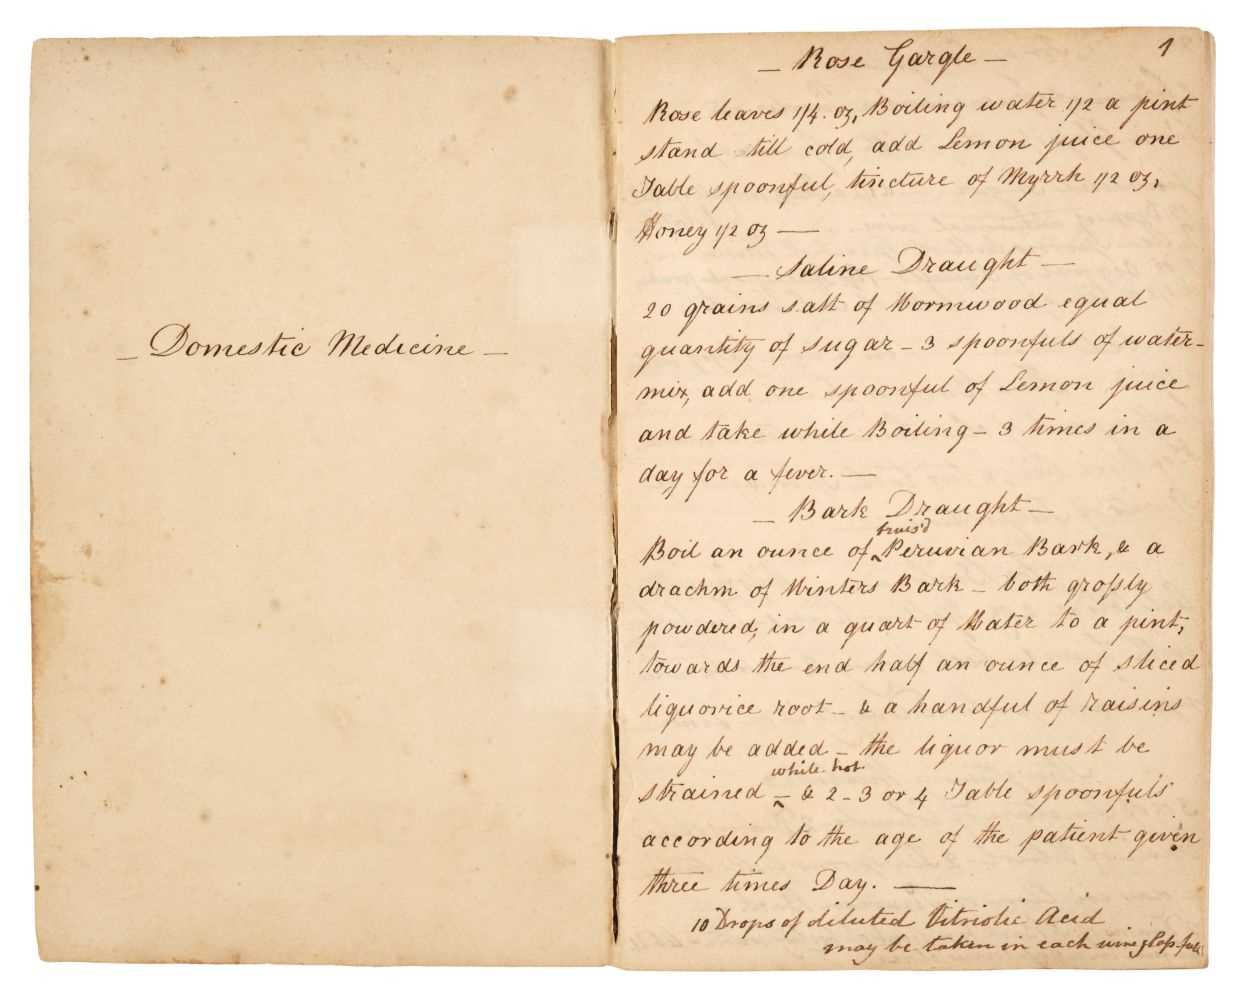 — Domestic Medicine —
1
— Rose Gargle —
Rose leaves 1/4. oz, Boiling water 1/2 a pint
stand till cold, add Lemon juice one
Table spoonful, tincture of Myrrh 1/2 oz,
Honey 1/2 oz —
— Saline Draught —
20 grains salt of Wormwood equal
quantity of sugar – 3 spoonfuls of water –
mix, add one spoonful of Lemon juice
and take while Boiling – 3 times in a
day for a fever. —
— Bark Draught —
bruis'd
Boil an ounce of ‸ Peruvian Bark, & a
drachm of Winters Bark – both grofsly
powdered, in a quart of Water to a pint,
towards the end half an ounce of sliced
liquorice root – & a handful of raisins
may be added – the liquor must be
while hot
strained – ‸ & 2 – 3 or 4 Table spoonfuls
according to the age of the patient given
three times Day. —
10 Drops of diluted Vitriolic Acid
may be taken in each wine glafs-full